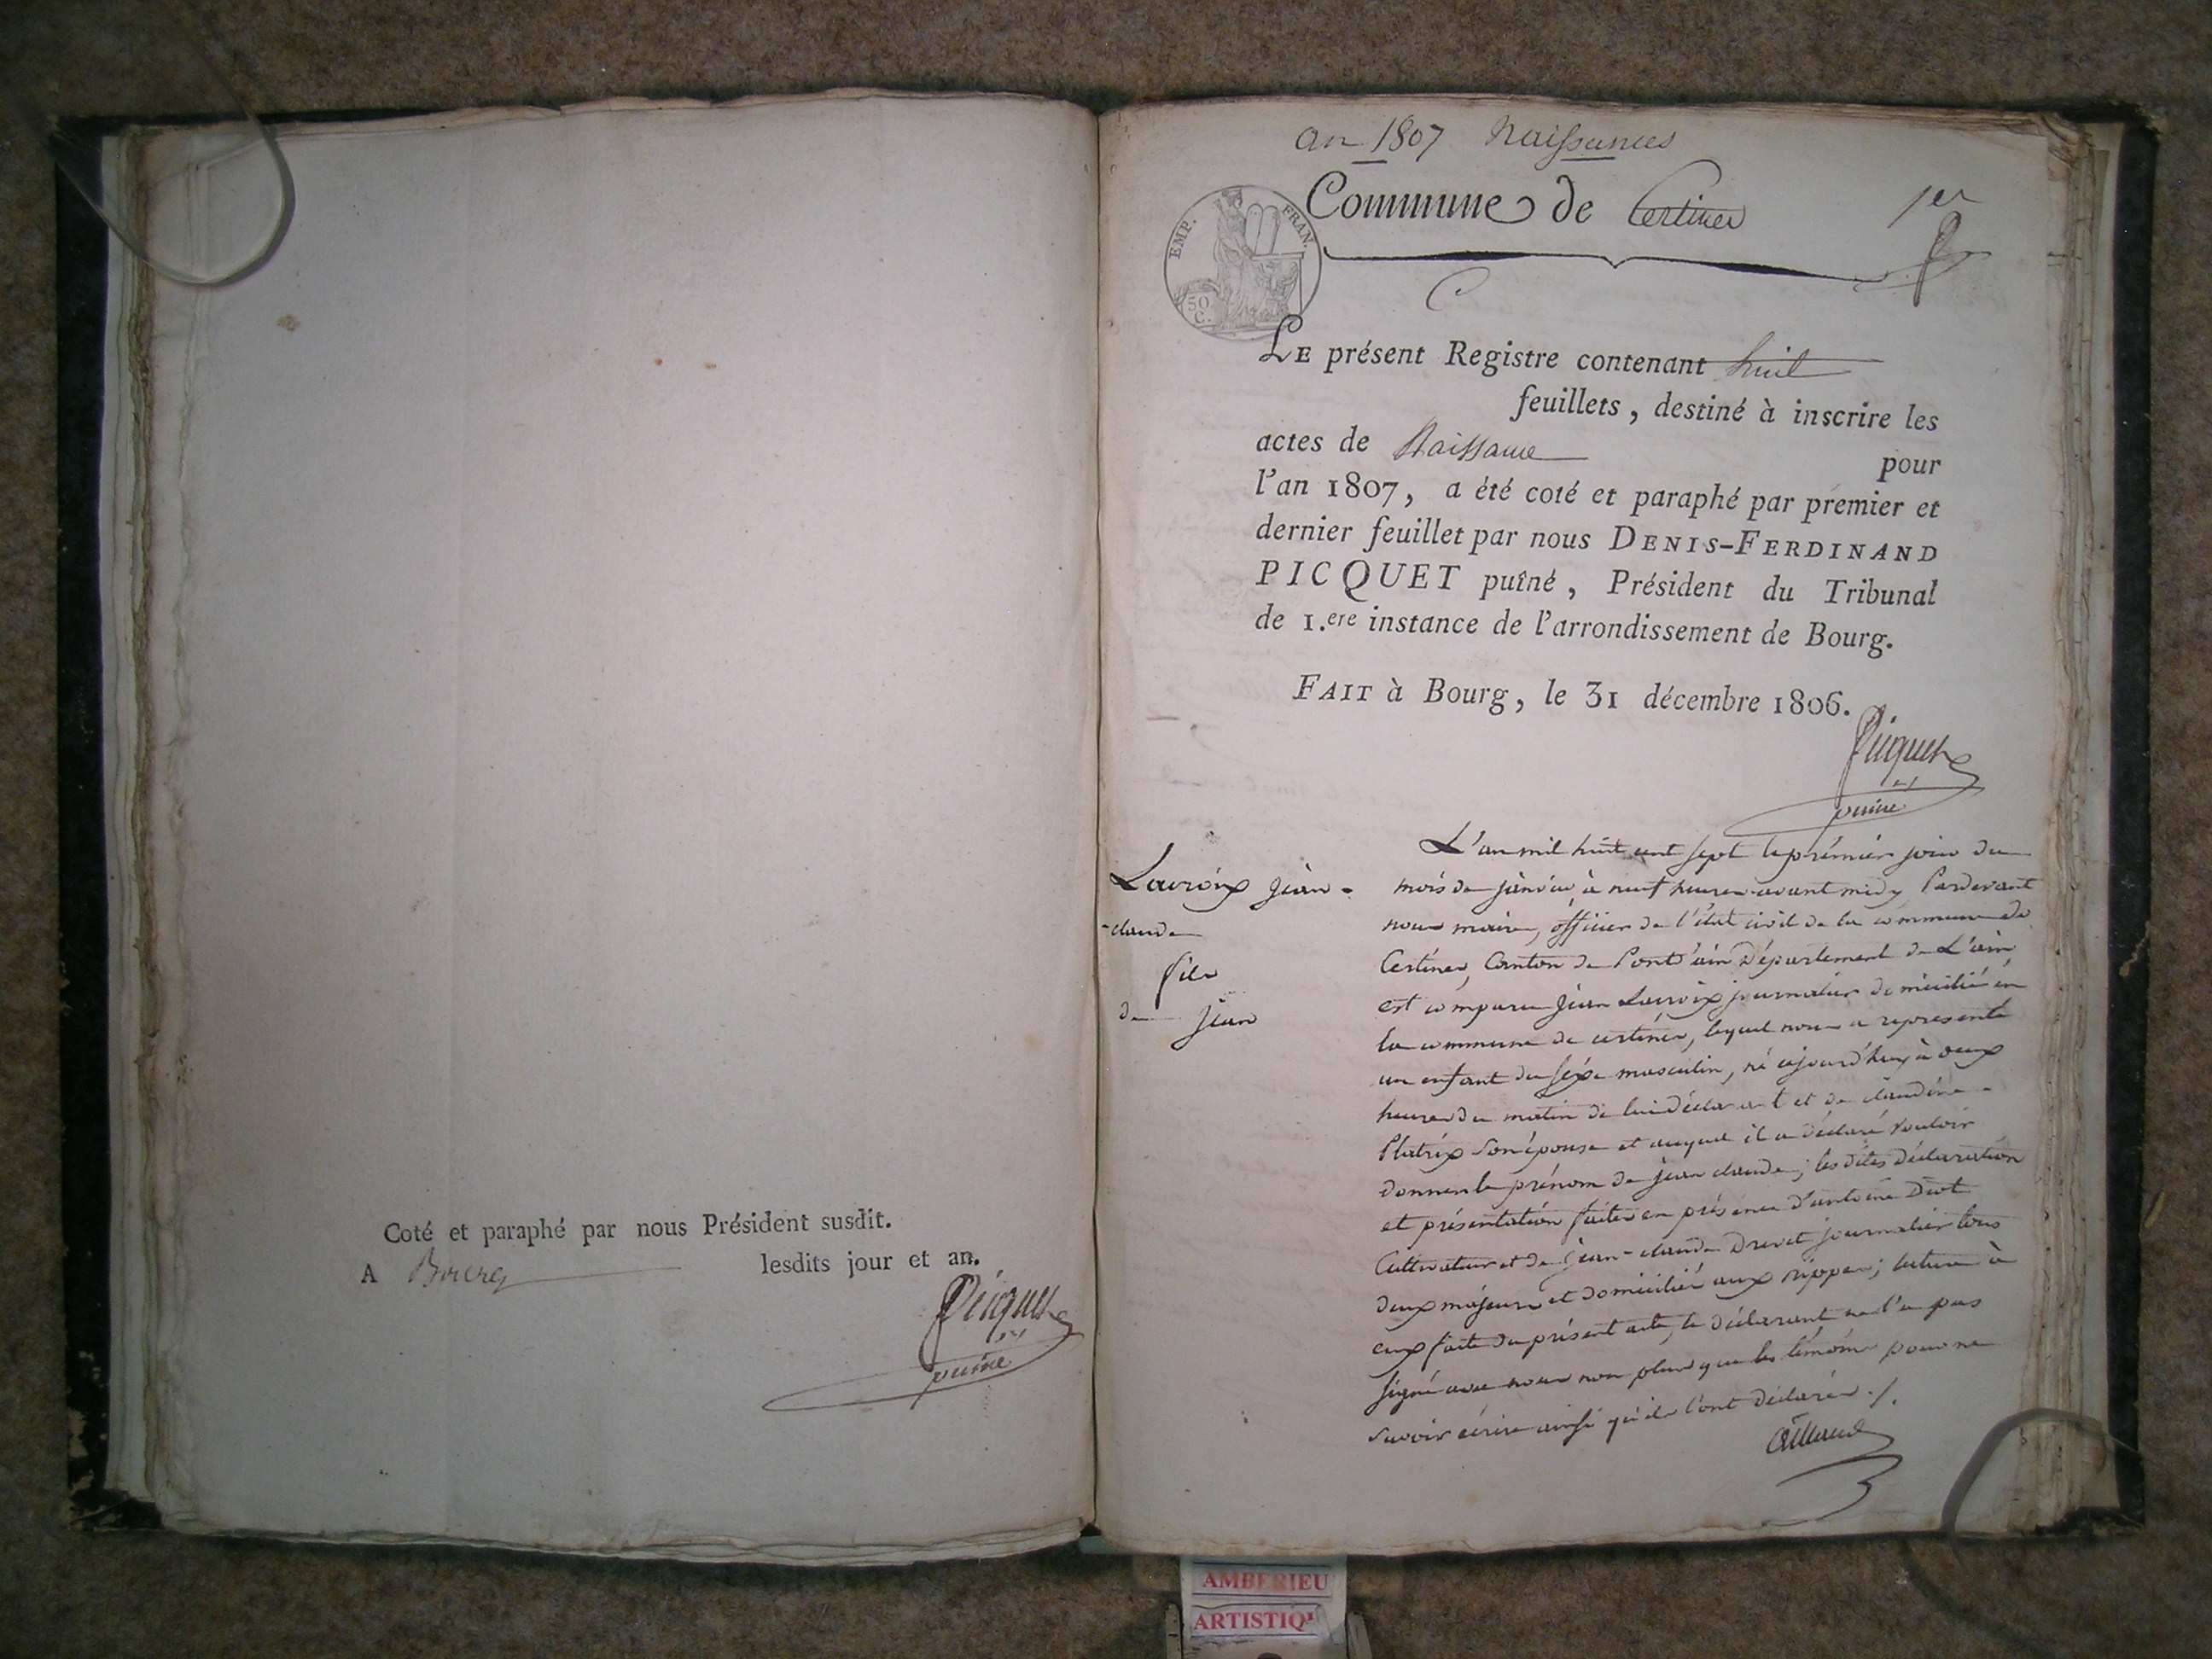 Coté et paraphé par nous Président susdit.
A Bourg lesdits jour et an.
Picquet
puiné
an 1807 Naissances
Commune de Certines
1er
EMP. FRAN.
50 C.
LE présent Registre contenant huit
feuillets, destiné à inscrire les
actes de Naissance pour
l'an 1807, a été coté et paraphé par premier et
dernier feuillet par nous DENIS-FERDINAND
PICQUET puîné, Président du Tribunal
de 1.ere instance de l'arrondissement de Bourg.
FAIT à Bourg, le 31 décembre 1806.
Picquet
puiné
Lacroix jean-
-claude
fils
de jean
L'an mil huit cent sept le prémier jour du
mois de janvier à neuf heures avant midy Pardevant
nous maire, officier de l'état civil de la commune de
Certines, Canton de Pontd'ain Département de L'ain,
est comparu jean Lacroix journalier domicilié en
la commune de certines, lequel nous a representé
un enfant du séxe masculin, né ajourd'huy à deux
heures du matin de lui déclarant et de claudine
Platrix son épouse et auquel il a déclaré vouloir
donner le prénom de jean claude; les dites déclaration
et présentation faites en présence d'antoine Diot
Cultivateur et de jean-claude Drevet journalier tous
deux majeurs et domiciliés aux rippes; lecture à
eux faite du présent acte, le déclarant ne l'a pas
signé avec nous non plus que les témoins pour ne
savoir écrire ainsi qu'ils l'ont déclaré ./.
AMBERIEU
ARTISTIQ